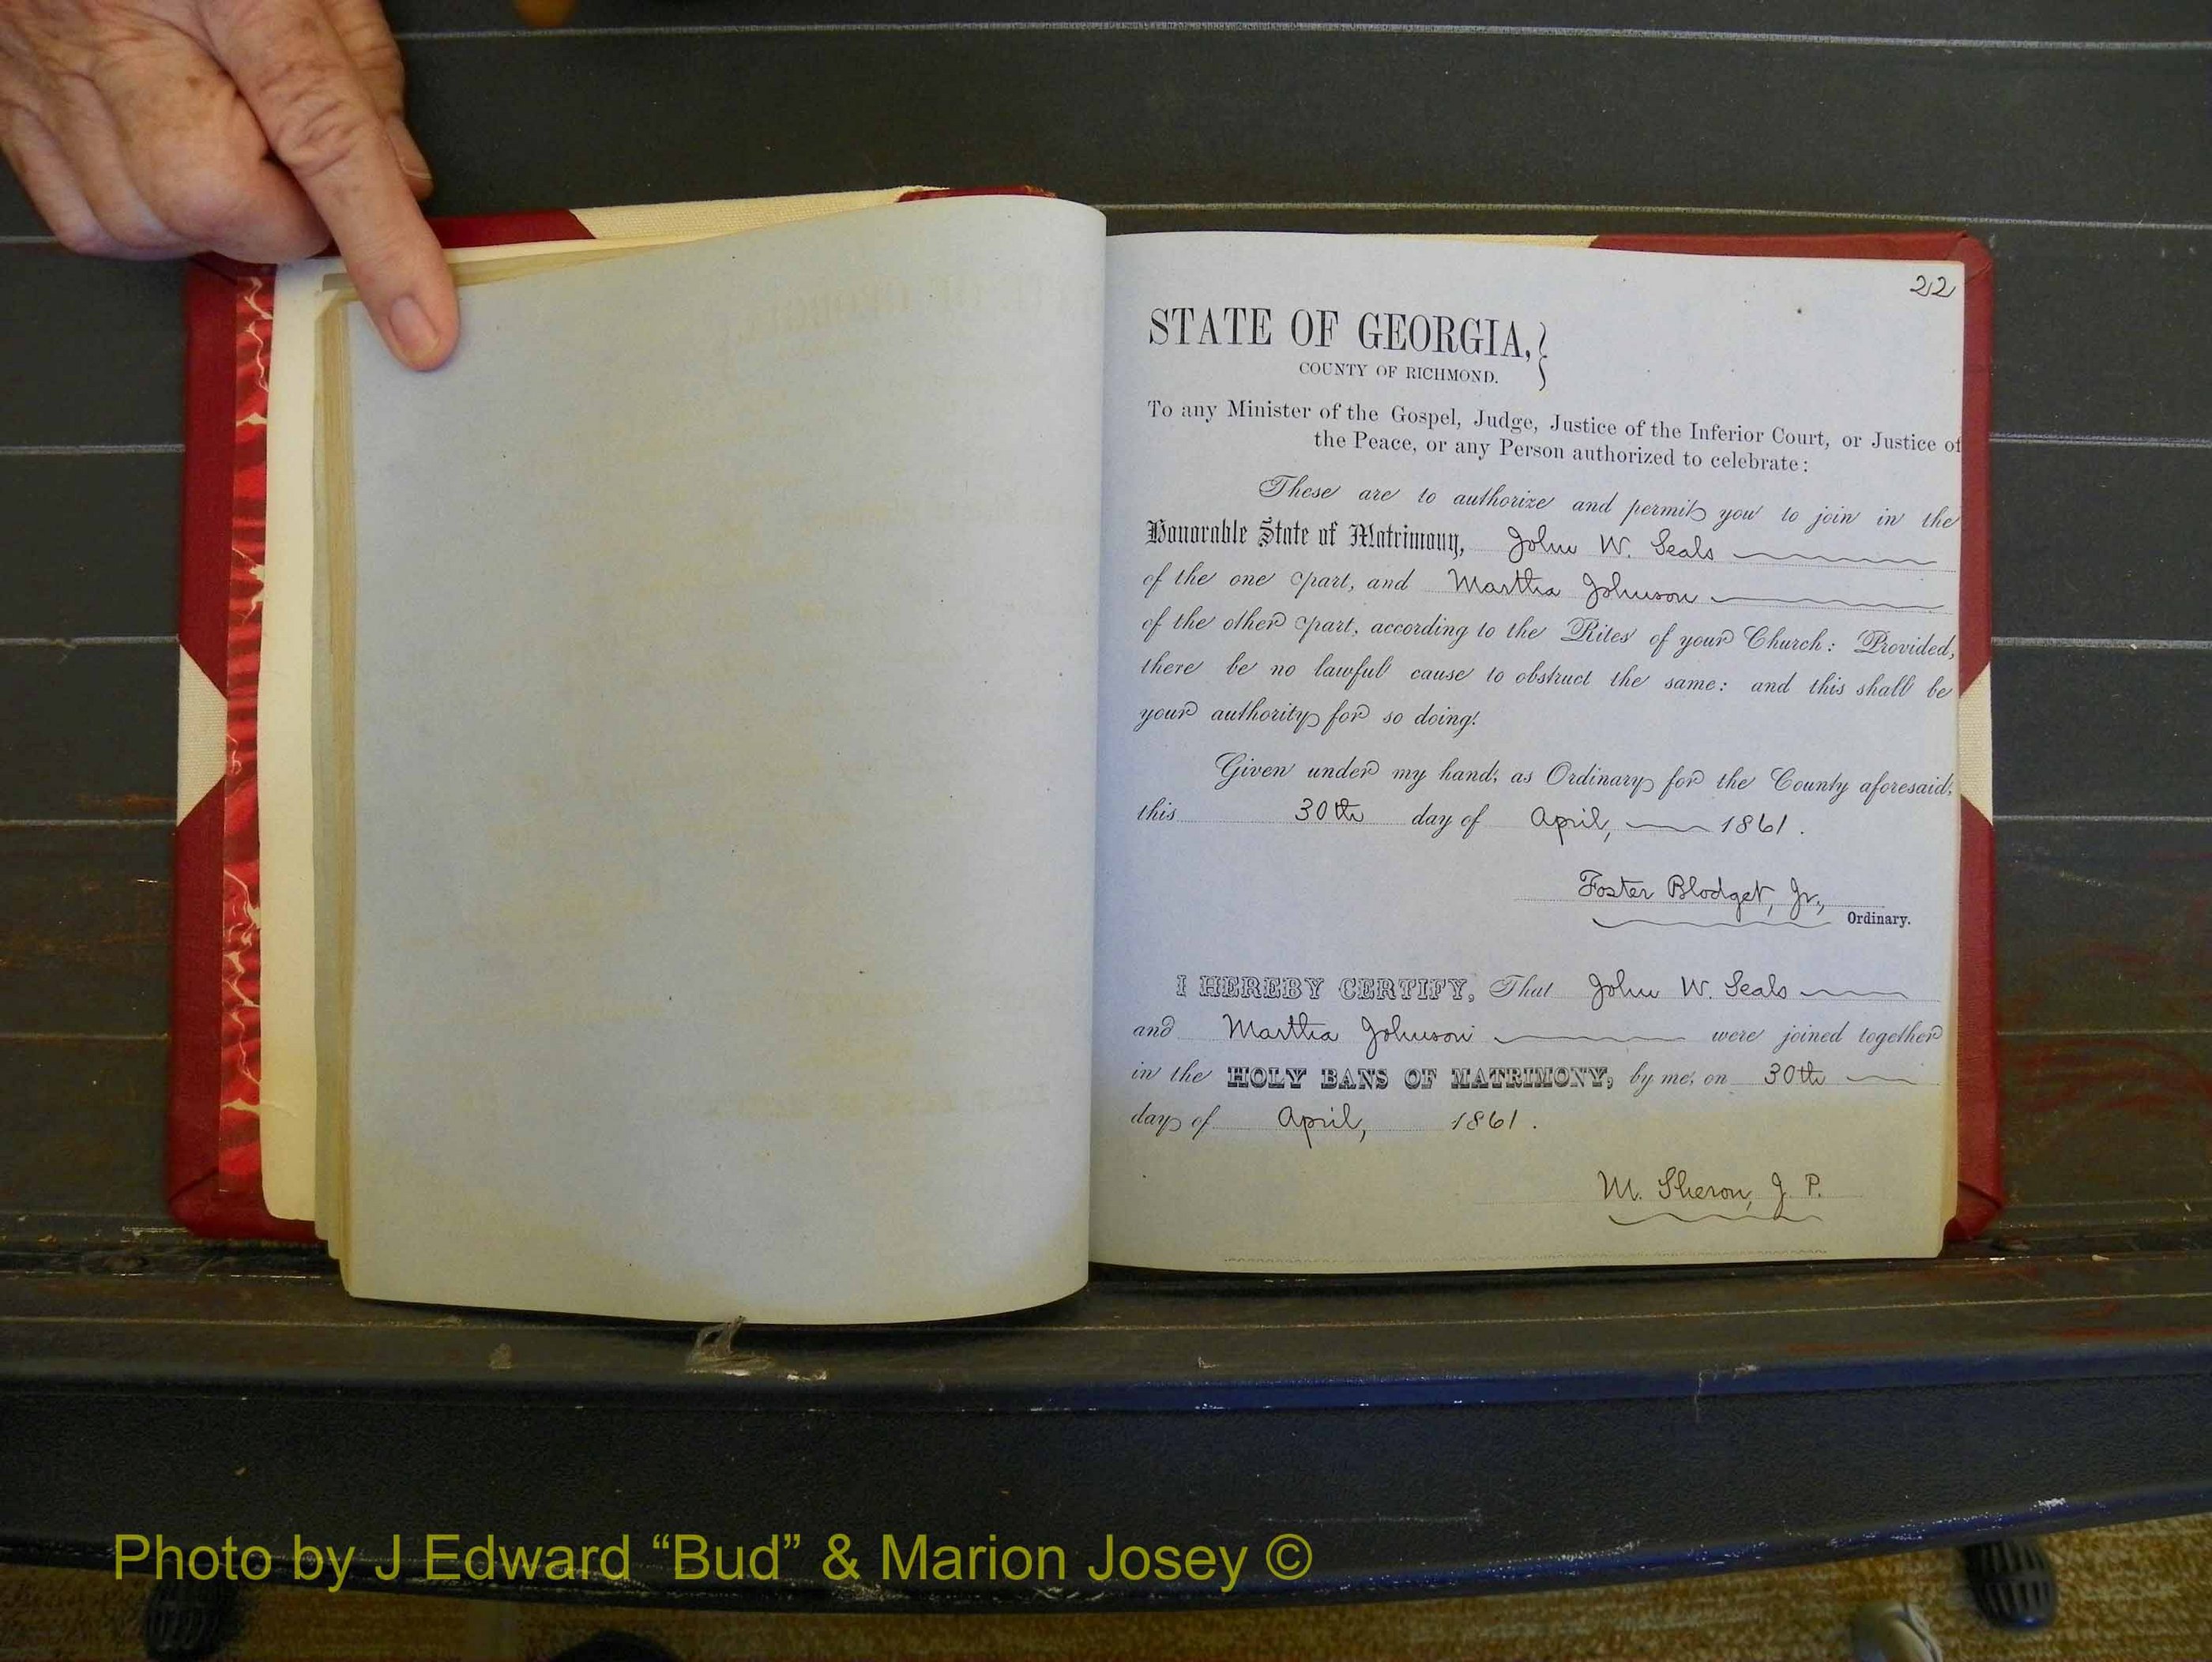 22
STATE OF GEORGIA,
COUNTY OF RICHMOND.
To any Minister of the Gospel, Judge, Justice of the Inferior Court, or Justice of
the Peace, or any Person authorized to celebrate:
These are to authorize and permit you to join in the
Honorable State of Matrimony, John W. Seals
of the one part, and Martha Johnson
of the other part, according to the Rites of your Church: Provided,
there be no lawful cause to obstruct the same: and this shall be
your authority for so doing.
Given under my hand, as Ordinary for the County aforesaid,
this 30th day of April, 1861.
Foster Blodget, Jr.,
Ordinary.
I HEREBY CERTIFY, That John W. Seals
and Martha Johnson were joined together
in the HOLY BANS OF MATRIMONY, by me, on 30th
day of April, 1861.
M. Sheron, J. P.
Photo by J Edward “Bud” & Marion Josey ©